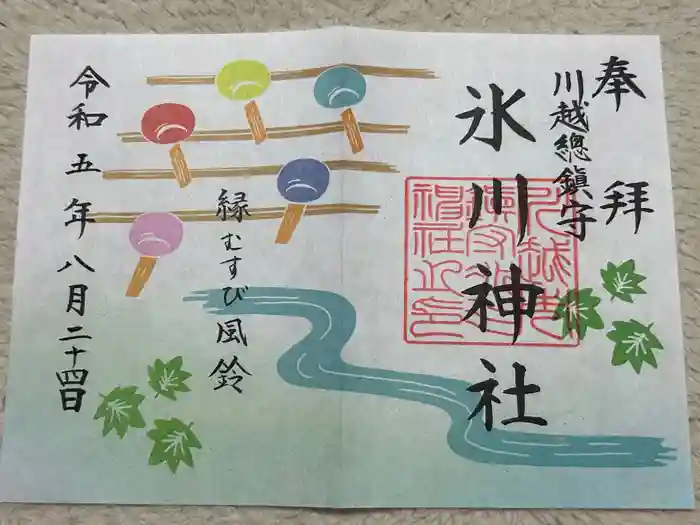 奉拝
川越總鎮守
氷川神社
縁むすび風鈴
令和五年八月二十四日